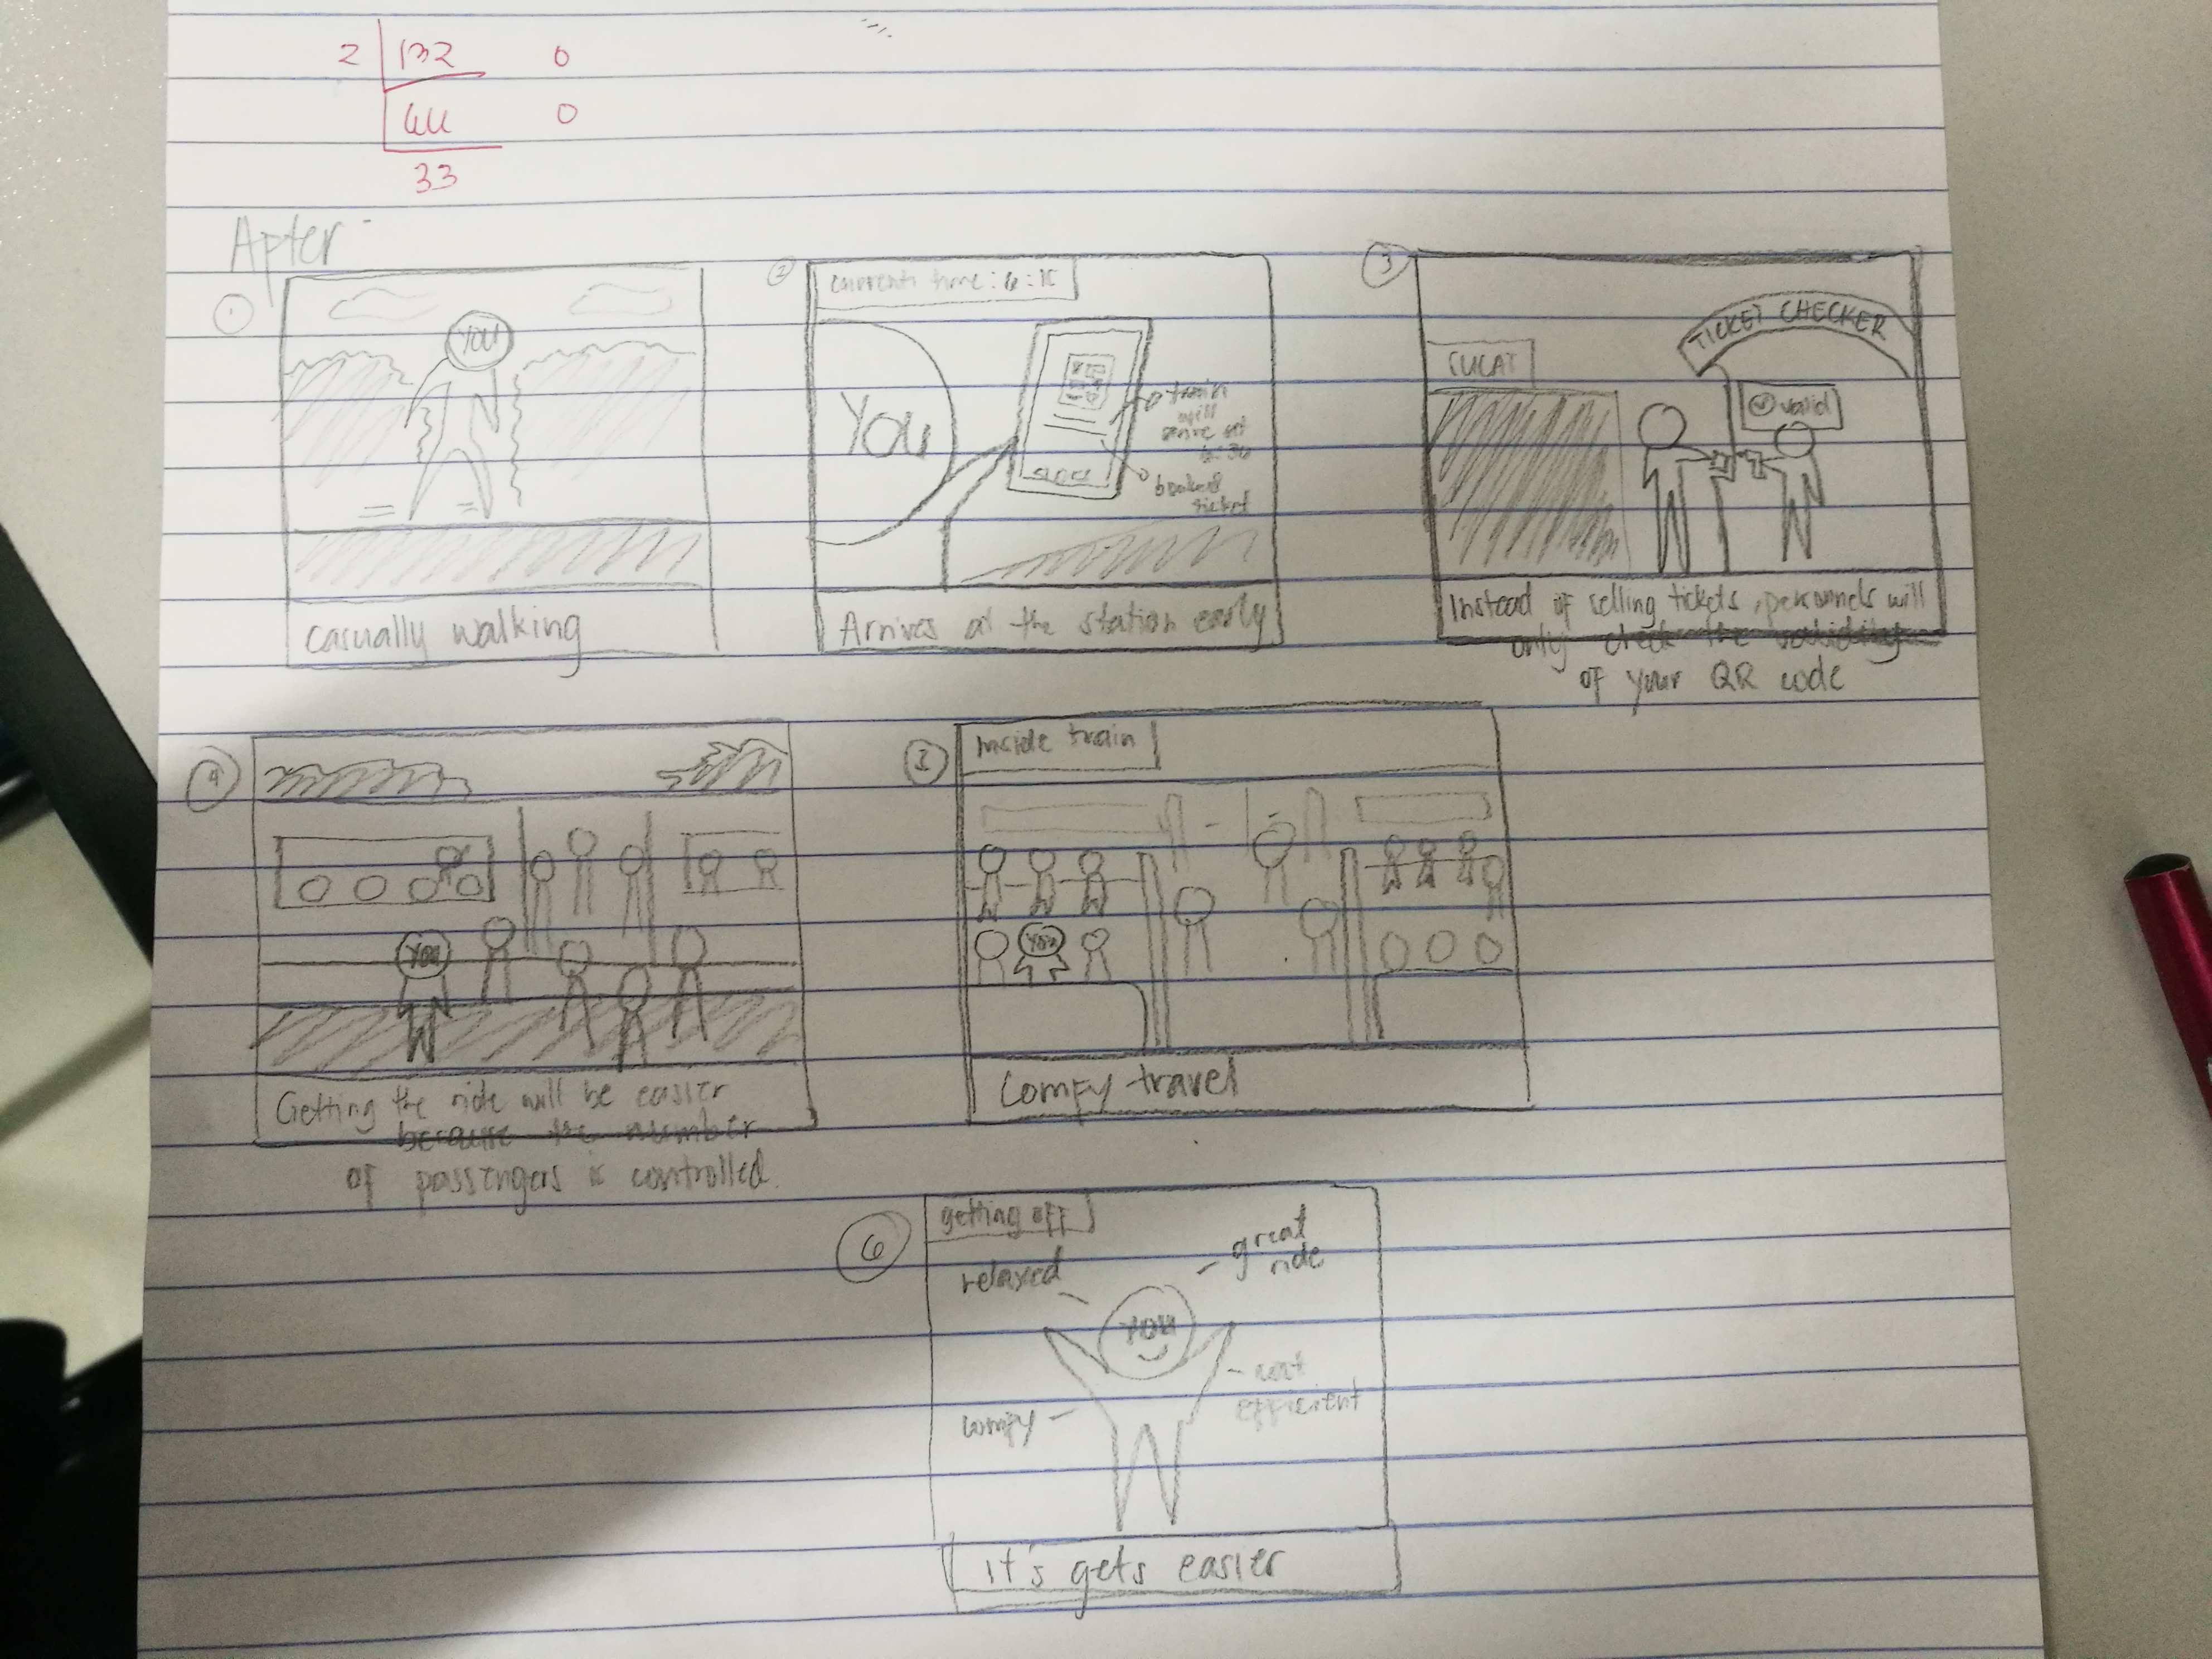 2 132 0
66 0
33
After
1
YOU
casually walking
2
current time: 6:15
YOU
train
will
arrive at
6:30
booked
ticket
Arrives at the station early
3
TICKET CHECKER
SUCAT
valid
Instead of selling tickets, personnels will
only check the validity
of your QR code
4
YOU
Getting the ride will be easier
because the number
of passengers is controlled.
5
Inside train
YOU
Comfy travel
6
getting off
relaxed
great
ride
YOU
cost
efficient
comfy
it's gets easier